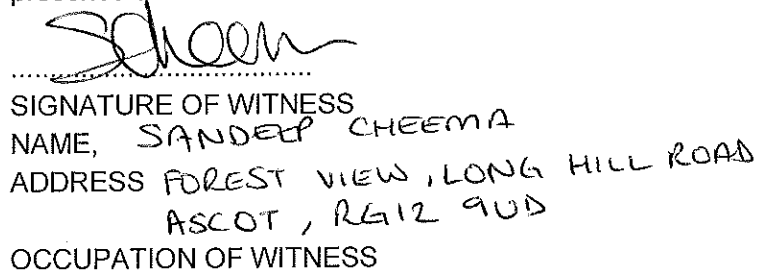 SCheema
.......................................
SIGNATURE OF WITNESS
NAME, SANDEEP CHEEMA
ADDRESS FOREST VIEW, LONG HILL ROAD
ASCOT, RG12 9UD
OCCUPATION OF WITNESS